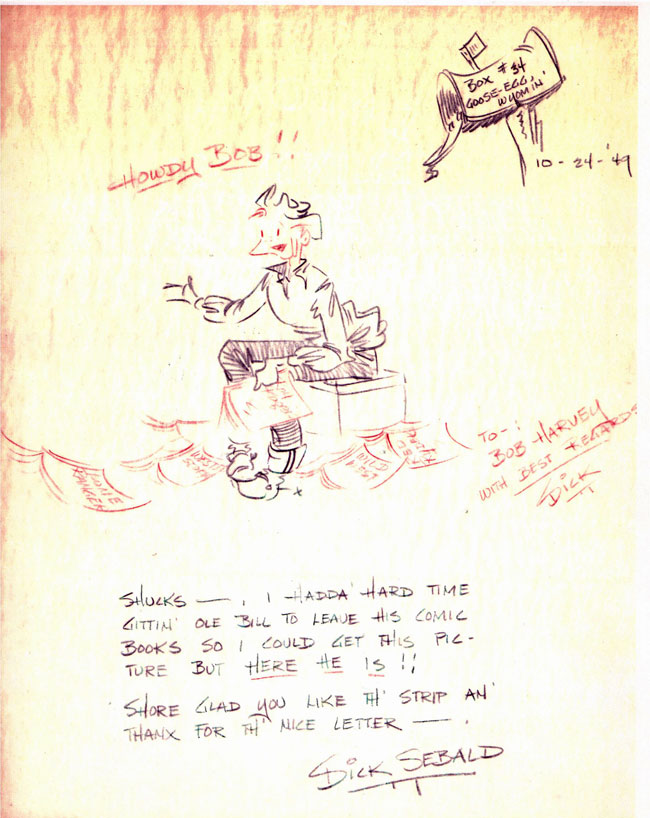 BOX # 34
GOOSE-EGG,
WYOMIN'
10-24-'49
HOWDY BOB!!
LONE
RANGER
WILD
WEST
TO-:
BOB HARVEY
WITH BEST REGARDS
DICK
SHUCKS —. I HADDA' HARD TIME
GITTIN' OLE BILL TO LEAVE HIS COMIC
BOOKS SO I COULD GET THIS PIC-
TURE BUT HERE HE IS!!
SHORE GLAD YOU LIKE TH' STRIP AN'
THANX FOR TH' NICE LETTER —.
DICK SEBALD